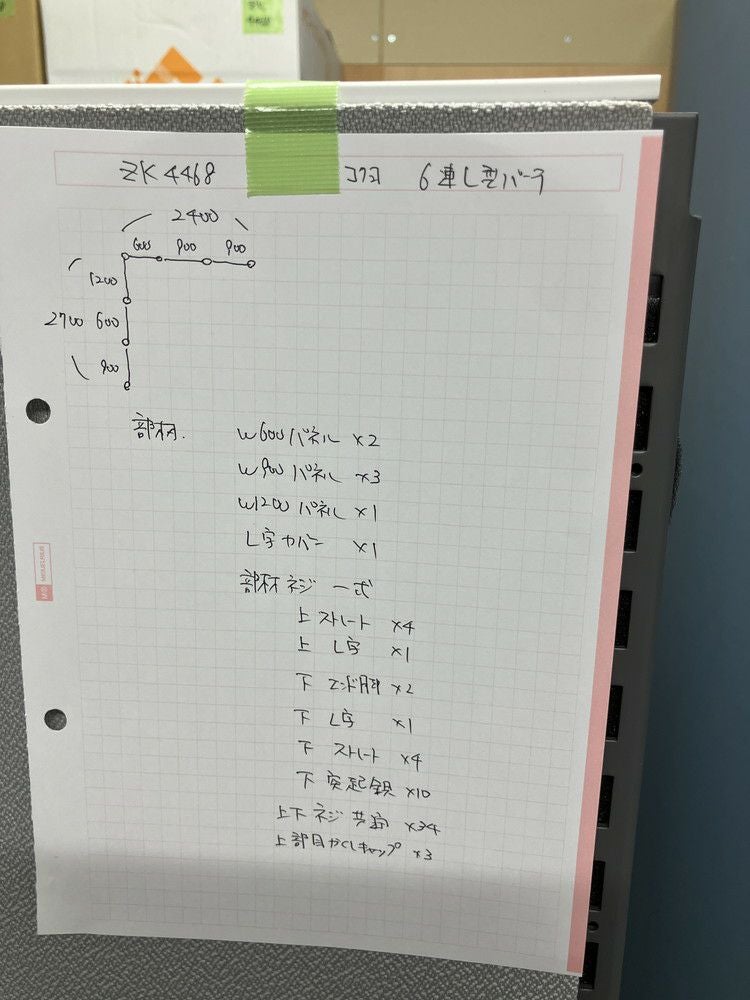 ZK4468 コクヨ 6連L型パーテ
2400
600 900 900
1200
2700 600
900
部材. W600パネル ×2
W900パネル ×3
W1200パネル ×1
L字カバー ×1
部材ネジ 一式
上 ストレート ×4
上 L字 ×1
下 エンド脚 ×2
下 L字 ×1
下 ストレート ×4
下 突起鋲 ×10
上下ネジ共通 ×34
上部目かくしキャップ ×3